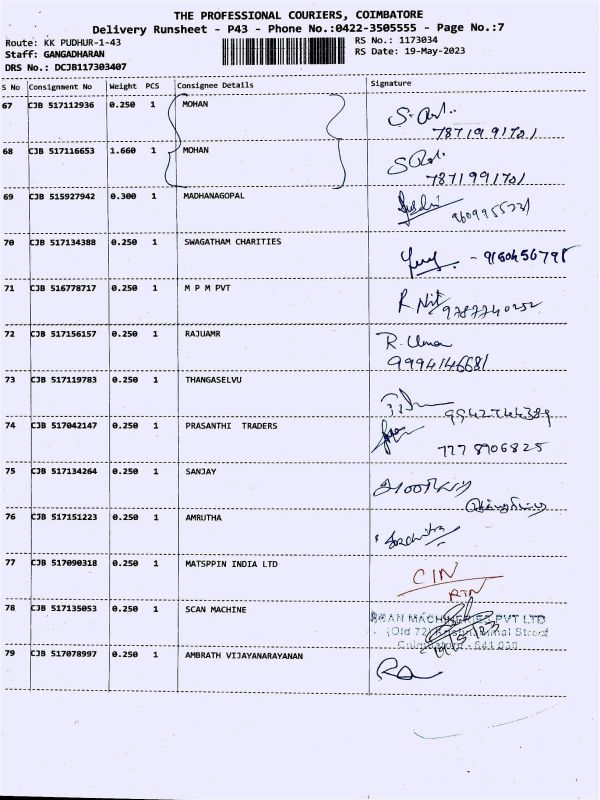 THE PROFESSIONAL COURIERS, COIMBATORE
Delivery Runsheet - P43 - Phone No.:0422-3505555 - Page No.:7
Route: KK PUDHUR-1-43
RS No.: 1173034
Staff: GANGADHARAN
RS Date: 19-May-2023
DRS No.: DCJB117303407
S No Consignment No Weight PCS Consignee Details Signature
67 CJB 517112936 0.250 1 MOHAN
7871991701
68 CJB 517116653 1.660 1 MOHAN
7871991701
69 CJB 515927942 0.300 1 MADHANAGOPAL
70 CJB 517134388 0.250 1 SWAGATHAM CHARITIES
71 CJB 516778717 0.250 1 M P M PVT
9787740252
72 CJB 517156157 0.250 1 RAJUAMR
R. Uma
9994146681
73 CJB 517119783 0.250 1 THANGASELVU
9942744389
74 CJB 517042147 0.250 1 PRASANTHI TRADERS
777 8906825
75 CJB 517134264 0.250 1 SANJAY
76 CJB 517151223 0.250 1 AMRUTHA
77 CJB 517090318 0.250 1 MATSPPIN INDIA LTD
CIN
RTN
78 CJB 517135053 0.250 1 SCAN MACHINE
SCAN MACHINERIES PVT LTD
(Old 72)
Street
79 CJB 517078997 0.250 1 AMBRATH VIJAYANARAYANAN